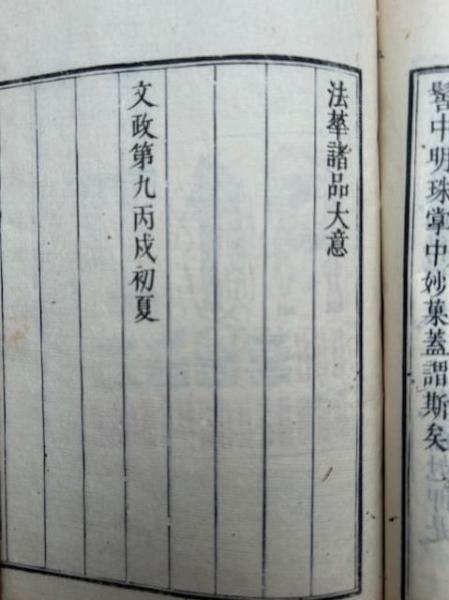 髻中明珠掌中妙菓蓋謂斯矣
法華諸品大意
文政第九丙戌初夏